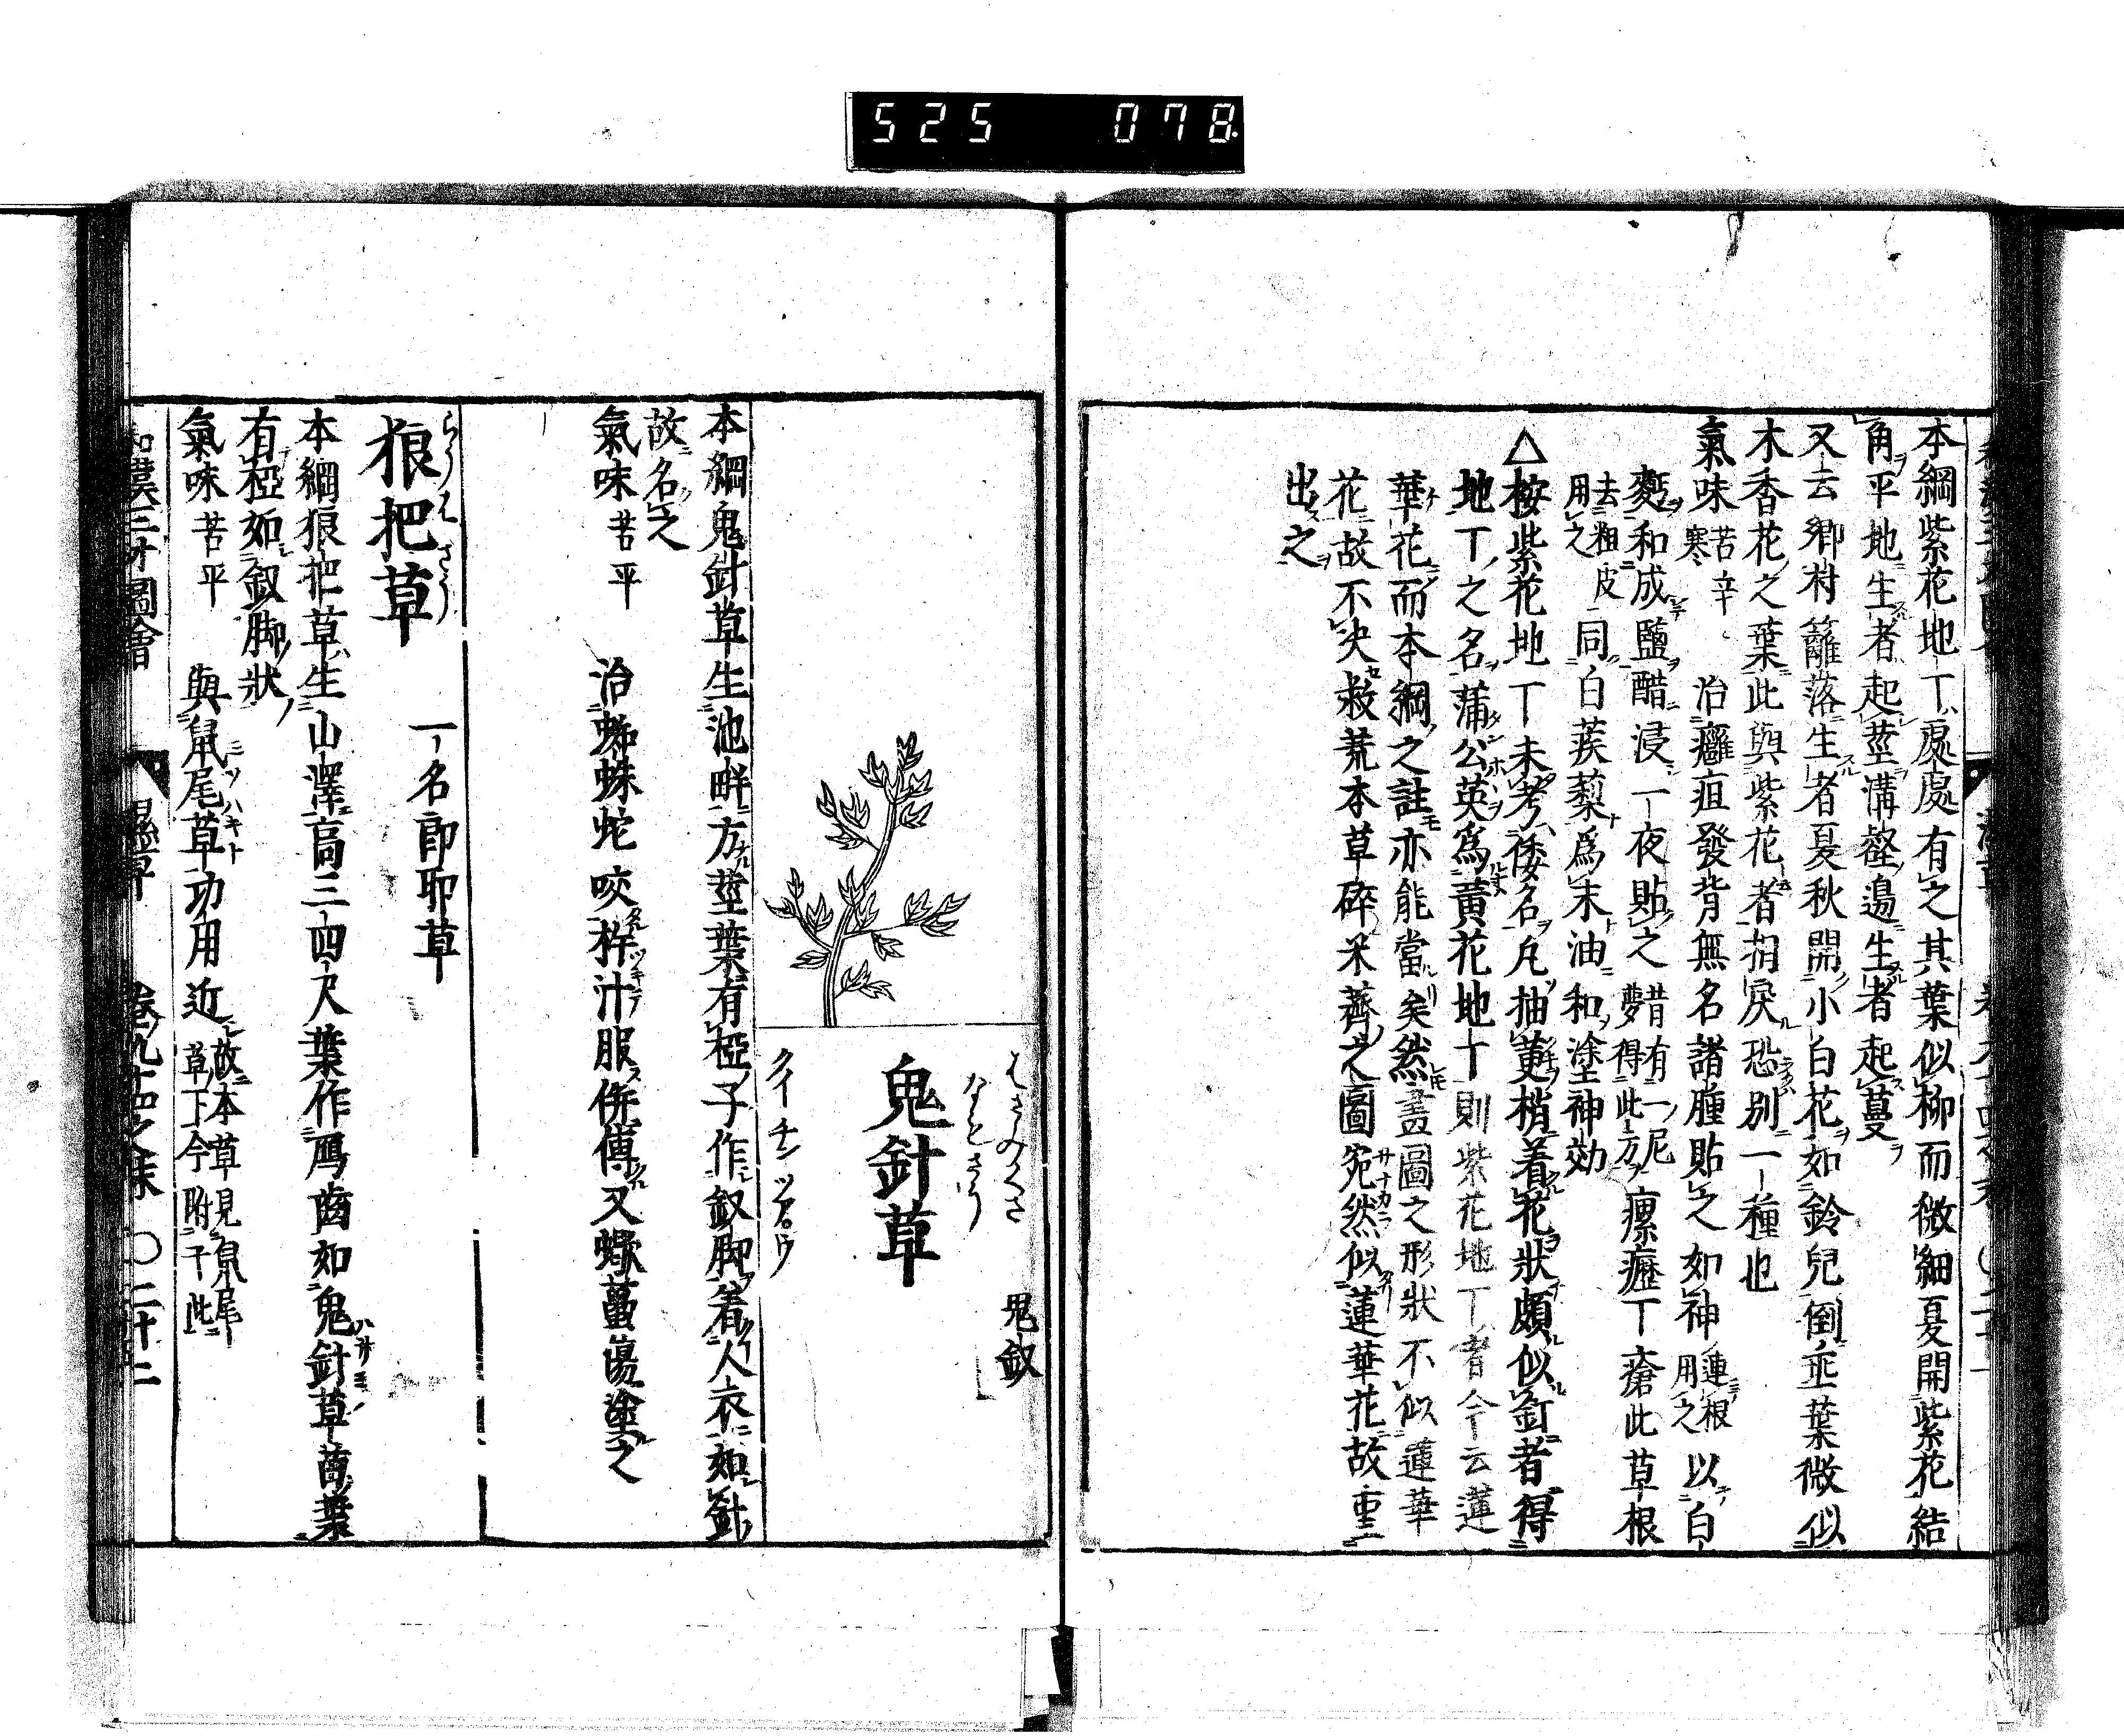 525 078
本綱紫花地丁處處有之其葉似柳而微細夏開紫花結
角平地生者起莖溝壑邉生者起蔓
又云鄉村籬落生者夏秋開小白花如鈴兒倒垂葉微似
木香花之葉此與紫花者相戾恐別一種也
氣味 苦辛寒 治癰疽發背無名諸腫貼之如神 連根用之 以白
麪和成鹽醋浸一夜貼之 昔有一尼夢得此方 瘭癧丁瘡此草根
去粗皮用之 同白蒺藜爲末油和塗神効
△按紫花地丁未考倭名凡抽莄梢着花狀頗似釘者得
地丁之名蒲公英爲黃花地丁則紫花地丁者今云蓮
華花而本綱之註亦能當矣然畫圖之形狀不似蓮華
花故不决救荒本草碎米薺之圖宛然似蓮華花故重
出之
はさみくさ
鬼針草 鬼釵
クイチンツア゚ウ
本綱鬼針草生池畔方莖葉有椏子作釵脚着人衣如針
故名之
氣味 苦平 治蜘蛛蛇咬杵汁服併傅又蠍蠆傷塗之
らうはざう
狼把草 一名郎耶草
本綱狼把草生山澤高三四尺葉作鴈齒如鬼針草苗葉
有椏如釵脚狀
氣味 苦平 與鼠尾草功用近 故本草見鼠尾草下今附于此
和漢三才圖會 濕草 卷九十四之末 〇二十二